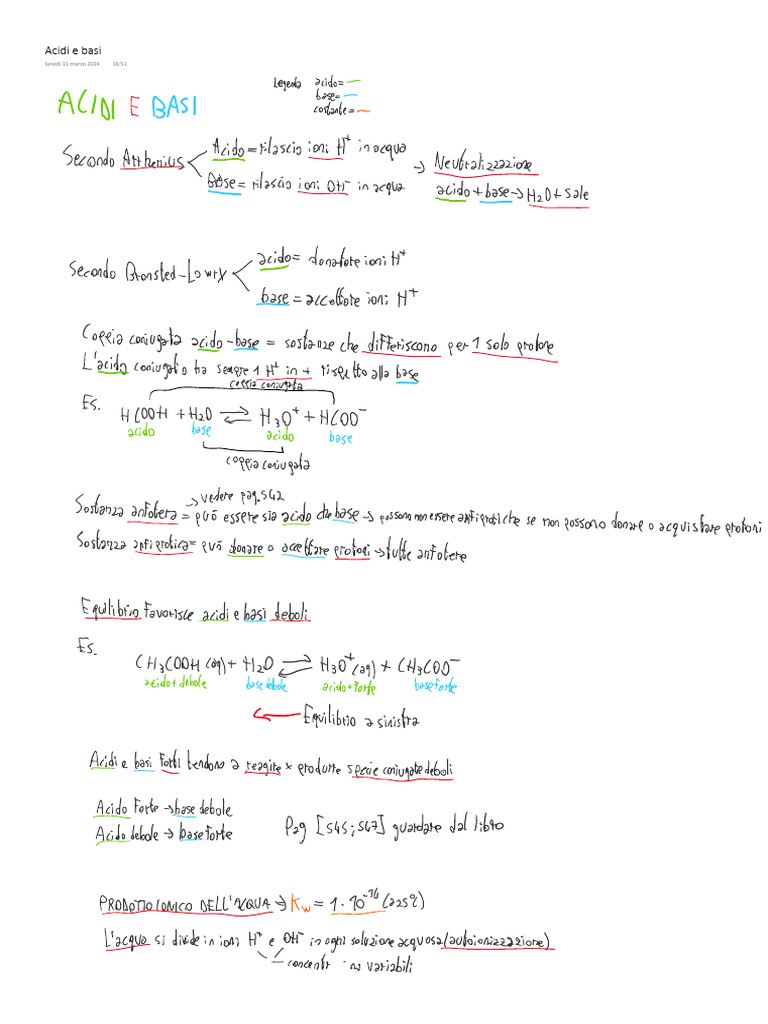 Acidi e basi
lunedì 11 marzo 2024 16:51
Legenda acido=
base=
costante=
ACIDI E BASI
Secondo Arrhenius
Acido=rilascio ioni H⁺ in acqua
Base= rilascio ioni OH⁻ in acqua
→ Neutralizzazione
acido+base→H₂O+sale
Secondo Bronsted-Lowry
acido= donatore ioni H⁺
base=accettore ioni H⁺
Coppia coniugata acido-base = sostanze che differiscono per 1 solo protone
L'acido coniugato ha sempre 1 H⁺ in + rispetto alla base
coppia coniugata
Es. HCOOH+H₂O ⇌ H₃O⁺+HCOO⁻
acido base acido base
coppia coniugata
→ vedere pag.542
Sostanza anfotera = può essere sia acido che base → possono non essere anfiprotiche se non possono donare o acquistare protoni
Sostanza anfiprotica= può donare o accettare protoni→tutte anfotere
Equilibrio favorisce acidi e basi deboli
Es.
CH₃COOH (aq)+H₂O ⇌ H₃O⁺(aq)+CH₃COO⁻
acido+debole base debole acido+forte base forte
← Equilibrio a sinistra
Acidi e basi forti tendono a reagire × produrre specie coniugate deboli
Acido forte→base debole
Acido debole→base forte
Pag [545;547] guardare dal libro
PRODOTTO IONICO DELL'ACQUA → Kw = 1·10⁻¹⁴ (a 25°)
L'acqua si divide in ioni H⁺ e OH⁻ in ogni soluzione acquosa (autoionizzazione)
variabili